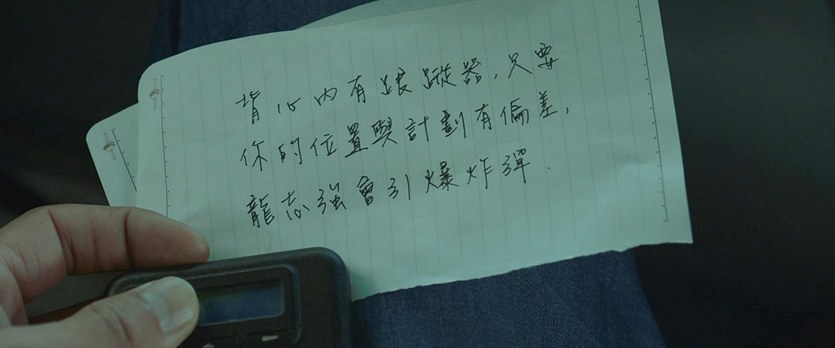 背心內有跟蹤器，只要
你的位置與計劃有偏差，
龍志強會引爆炸彈．